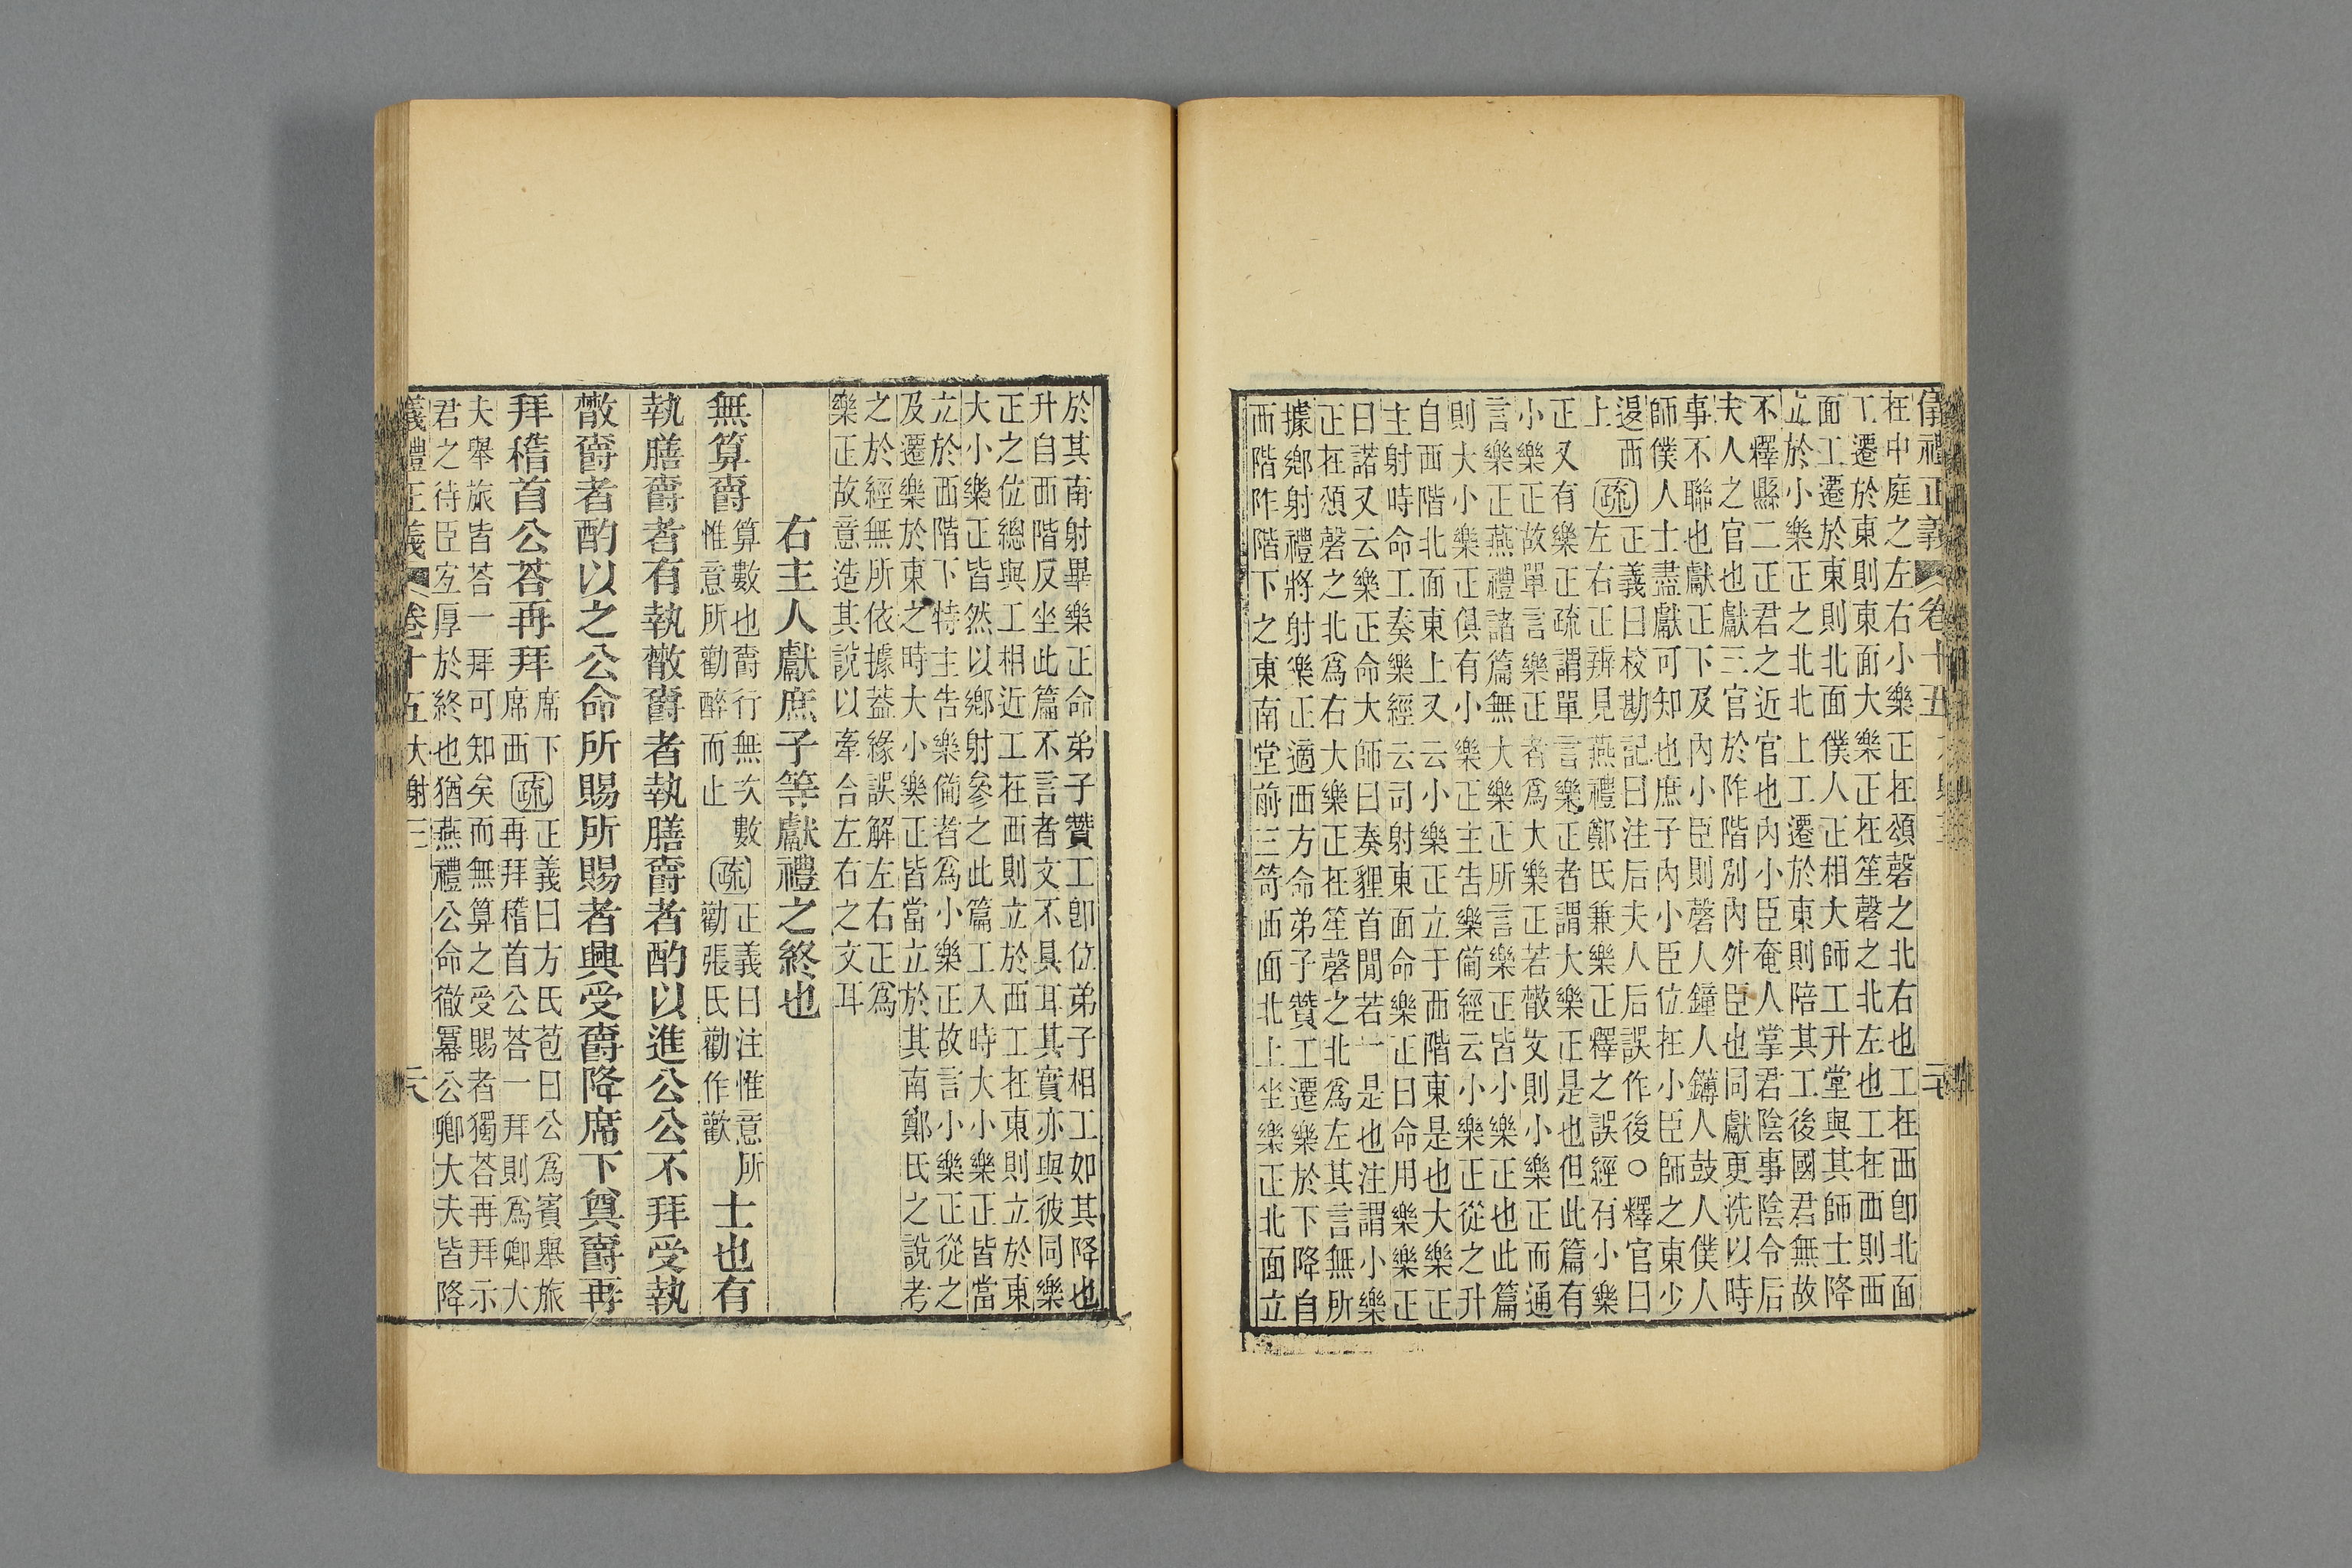 儀禮正義 卷十五
在中庭之左右小樂正在頌磬之北右也工在西卽北面
工遷於東則東面大樂正在笙磬之北左也工在西則西
面工遷於東則北面僕人正相大師工升堂與其師士降
立於小樂正之北北上工遷於東則陪其工後國君無故
不釋縣二正君之近官也內小臣奄人掌君陰事陰令后
夫人之官也獻三官於阼階別內外臣也同獻更洗以時
事不聯也獻正下及內小臣則磬人鐘人鎛人鼓人僕人
師僕人士盡獻可知也庶子內小臣位在小臣師之東少
退西 正義曰校勘記曰注后夫人后誤作後○釋官曰
上 疏 左右正辨見燕禮鄭氏兼樂正釋之誤經有小樂
正又有樂正疏謂單言樂正者謂大樂正是也但此篇有
小樂正故單言樂正者爲大樂正若散文則小樂正而通
言樂正燕禮諸篇無大樂正所言樂正皆小樂正也此篇
則大小樂正俱有小樂正主告樂備經云小樂正從之升
自西階北面東上又云小樂正立于西階東是也大樂正
主射時命工奏樂經云司射東面命樂正曰命用樂樂正
曰諾又云樂正命大師曰奏貍首閒若一是也注謂小樂
正在頌磬之北爲右大樂正在笙磬之北爲左其言無所
據鄉射禮將射樂正適西方命弟子贊工遷樂於下降自
西階阼階下之東南堂前三笴西面北上坐樂正北面立
於其南射畢樂正命弟子贊工卽位弟子相工如其降也
升自西階反坐此篇不言者文不具耳其實亦與彼同樂
正之位總與工相近工在西則立於西工在東則立於東
大小樂正皆然以鄉射參之此篇工入時大小樂正皆當
立於西階下特主告樂備者爲小樂正故言小樂正從之
及遷樂於東之時大小樂正皆當立於其南鄭氏之說考
之於經無所依據蓋緣誤解左右正爲
樂正故意造其說以牽合左右之文耳
右主人獻庶子等獻禮之終也
無算爵 算數也爵行無次數 惟意所勸醉而止 疏 正義曰注惟意所 勸張氏勸作歡 士也有
執膳爵者有執散爵者執膳爵者酌以進公公不拜受執
散爵者酌以之公命所賜所賜者興受爵降席下奠爵再
拜稽首公荅再拜 席下 席西 疏 正義曰方氏苞曰公爲賓舉旅
再拜稽首公荅一拜則爲卿大
夫舉旅皆荅一拜可知矣而無算之受賜者獨荅再拜示
君之待臣宐厚於終也猶燕禮公命徹冪公卿大夫皆降
義禮正義 卷十五 大射三